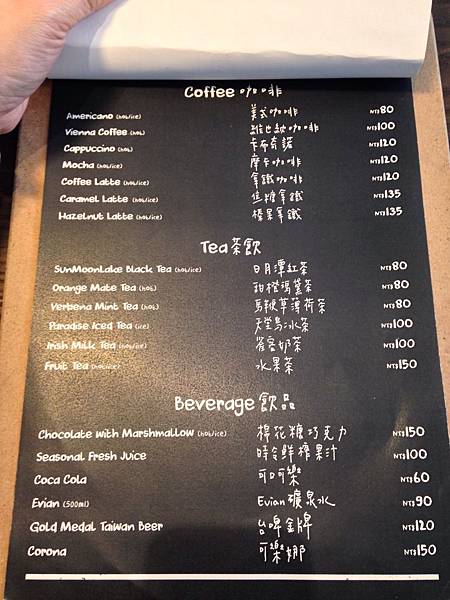 Coffee 咖啡
Americano (hot/ice) 美式咖啡 NT$80
Vienna Coffee (hot) 維也納咖啡 NT$100
Cappuccino (hot) 卡布奇諾 NT$120
Mocha (hot/ice) 摩卡咖啡 NT$120
Coffee Latte (hot/ice) 拿鐵咖啡 NT$120
Caramel Latte (hot/ice) 焦糖拿鐵 NT$135
Hazelnut Latte (hot/ice) 榛果拿鐵 NT$135
Tea茶飲
SunMoonLake Black Tea (hot/ice) 日月潭紅茶 NT$80
Orange Mate Tea (hot) 甜橙瑪黛茶 NT$80
Verbena Mint Tea (hot) 馬鞭草薄荷茶 NT$80
Paradise Iced Tea (ice) 天堂鳥冰茶 NT$100
Irish Milk Tea (hot/ice) 奶茶 NT$100
Fruit Tea (hot/ice) 水果茶 NT$150
Beverage 飲品
Chocolate with Marshmallow (hot/ice) 棉花糖巧克力 NT$150
Seasonal Fresh Juice 時令鮮榨果汁 NT$100
Coca Cola 可口可樂 NT$60
Evian (500ml) Evian礦泉水 NT$90
Gold Medal Taiwan Beer 台啤金牌 NT$120
Corona 可樂娜 NT$150